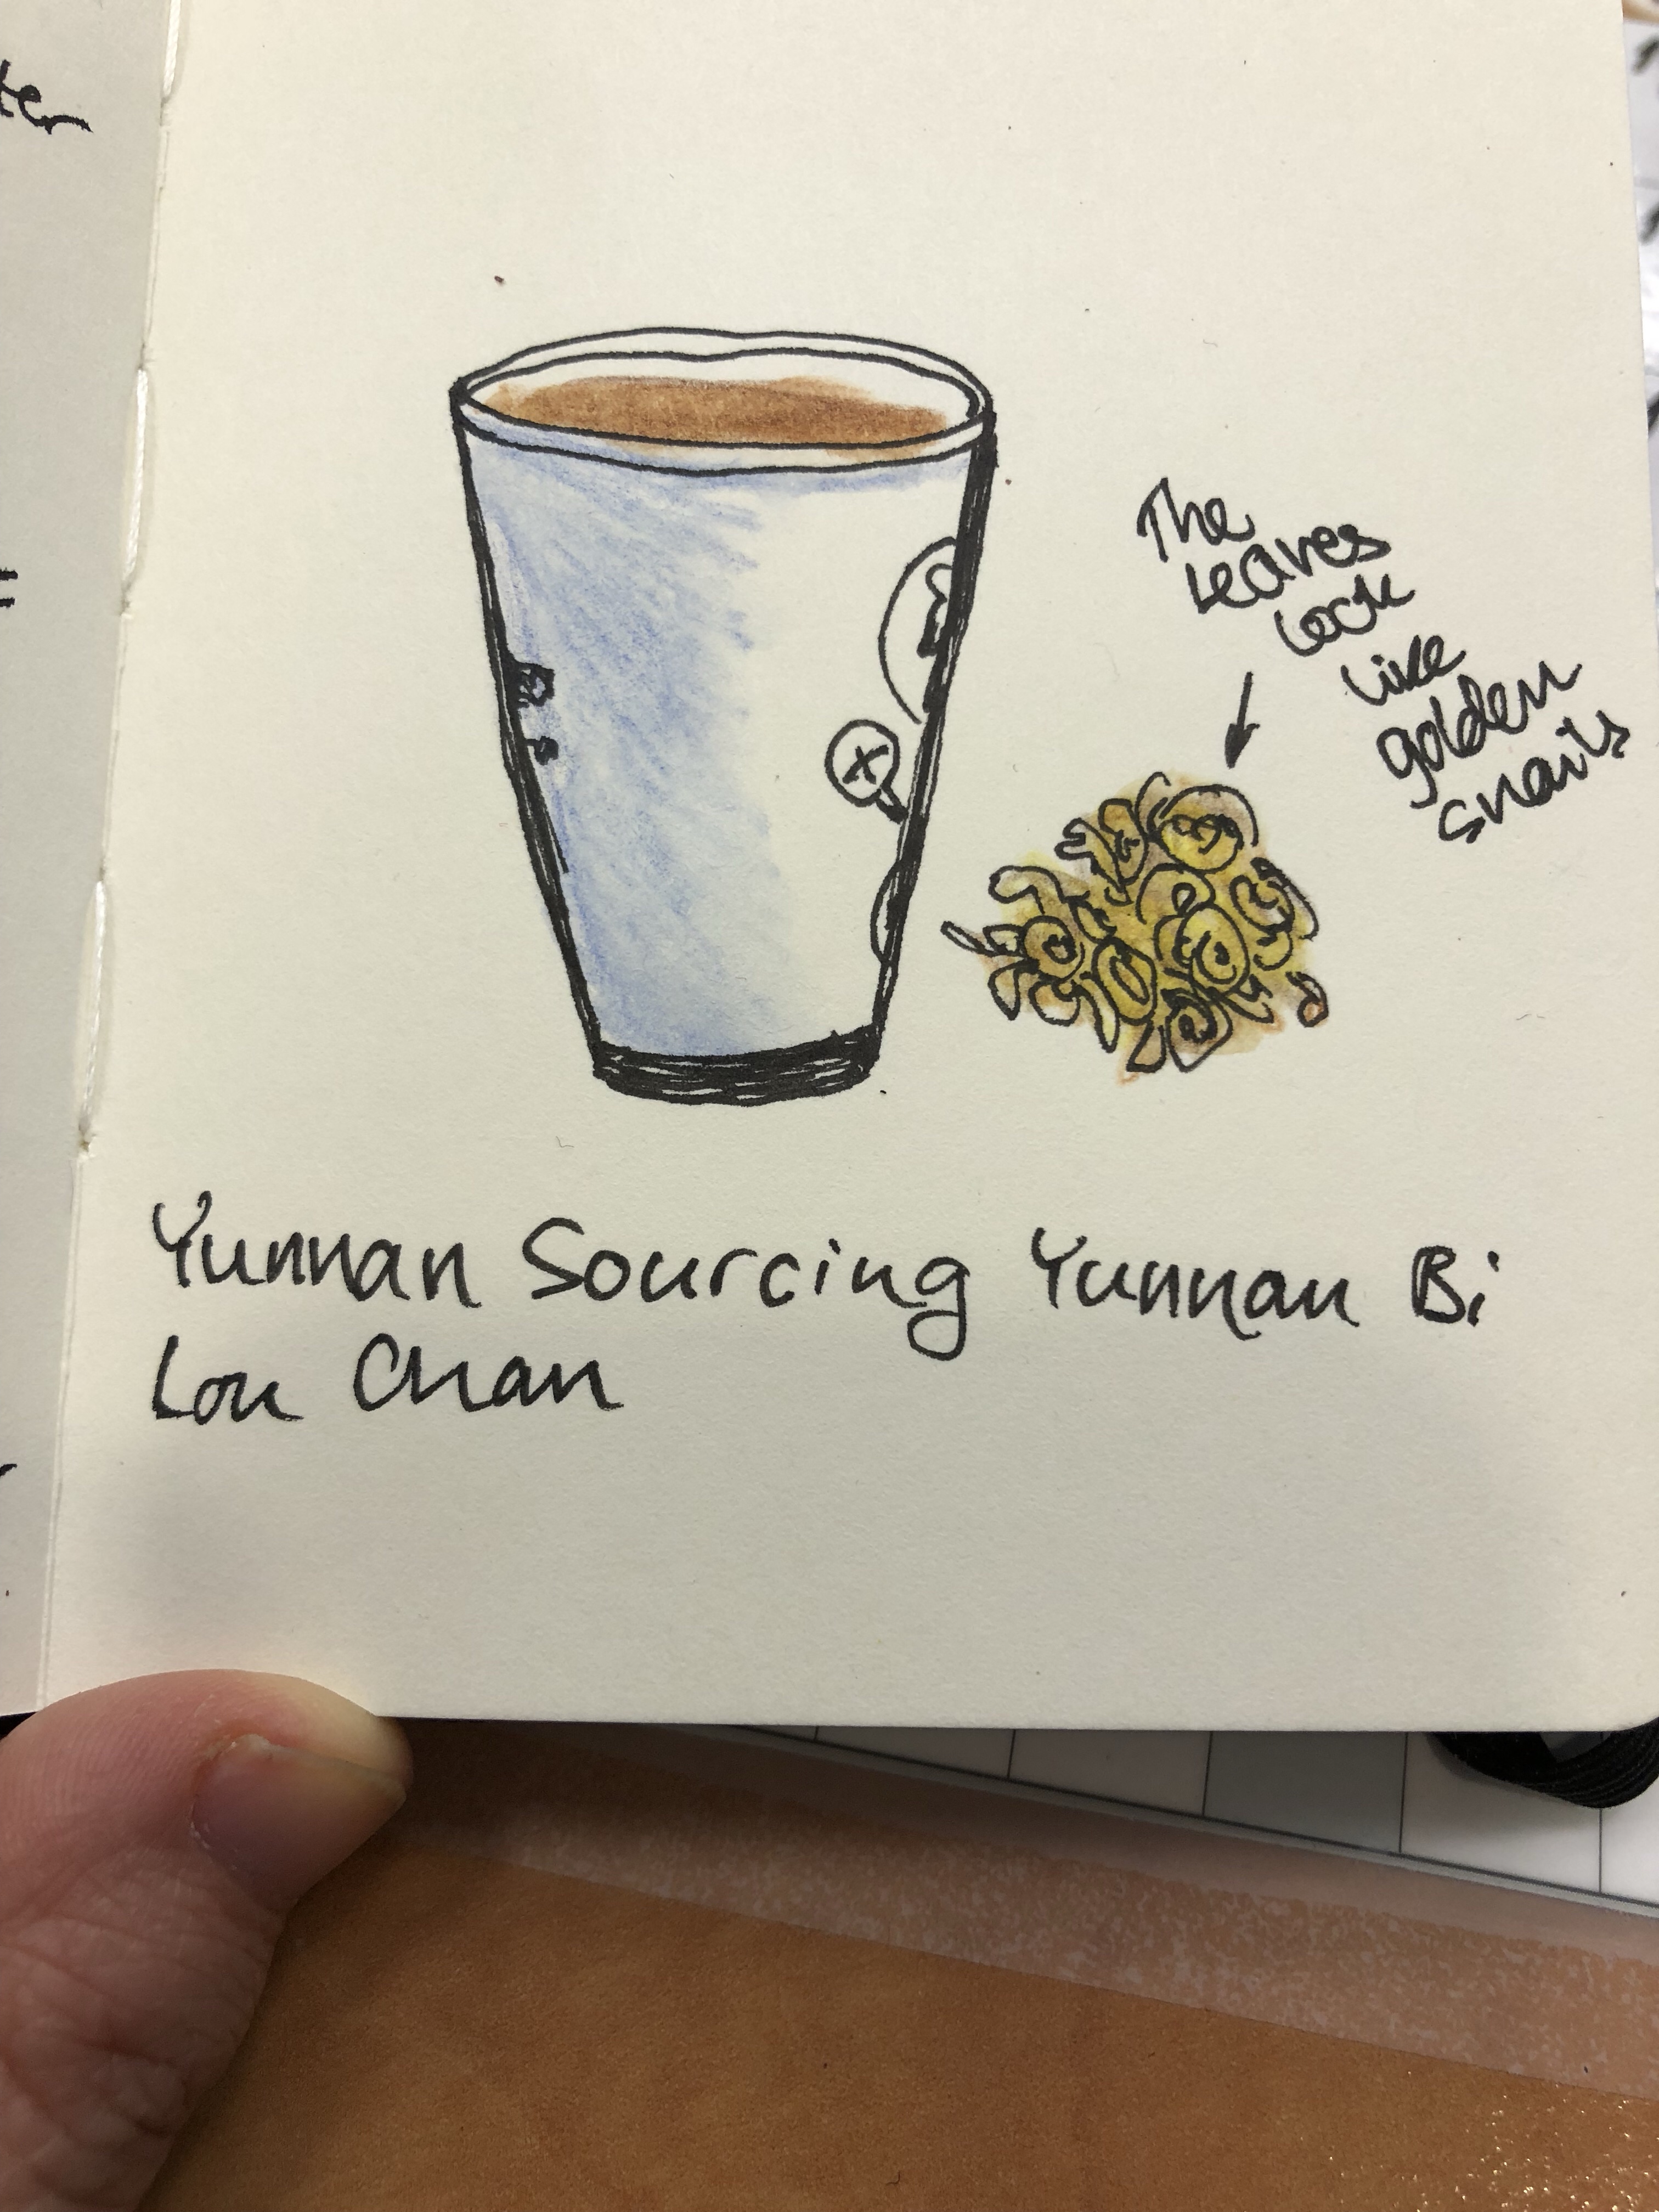 ter
The
leaves
look
like
golden
snails
Yunnan Sourcing Yunnan Bi
Lou Chan